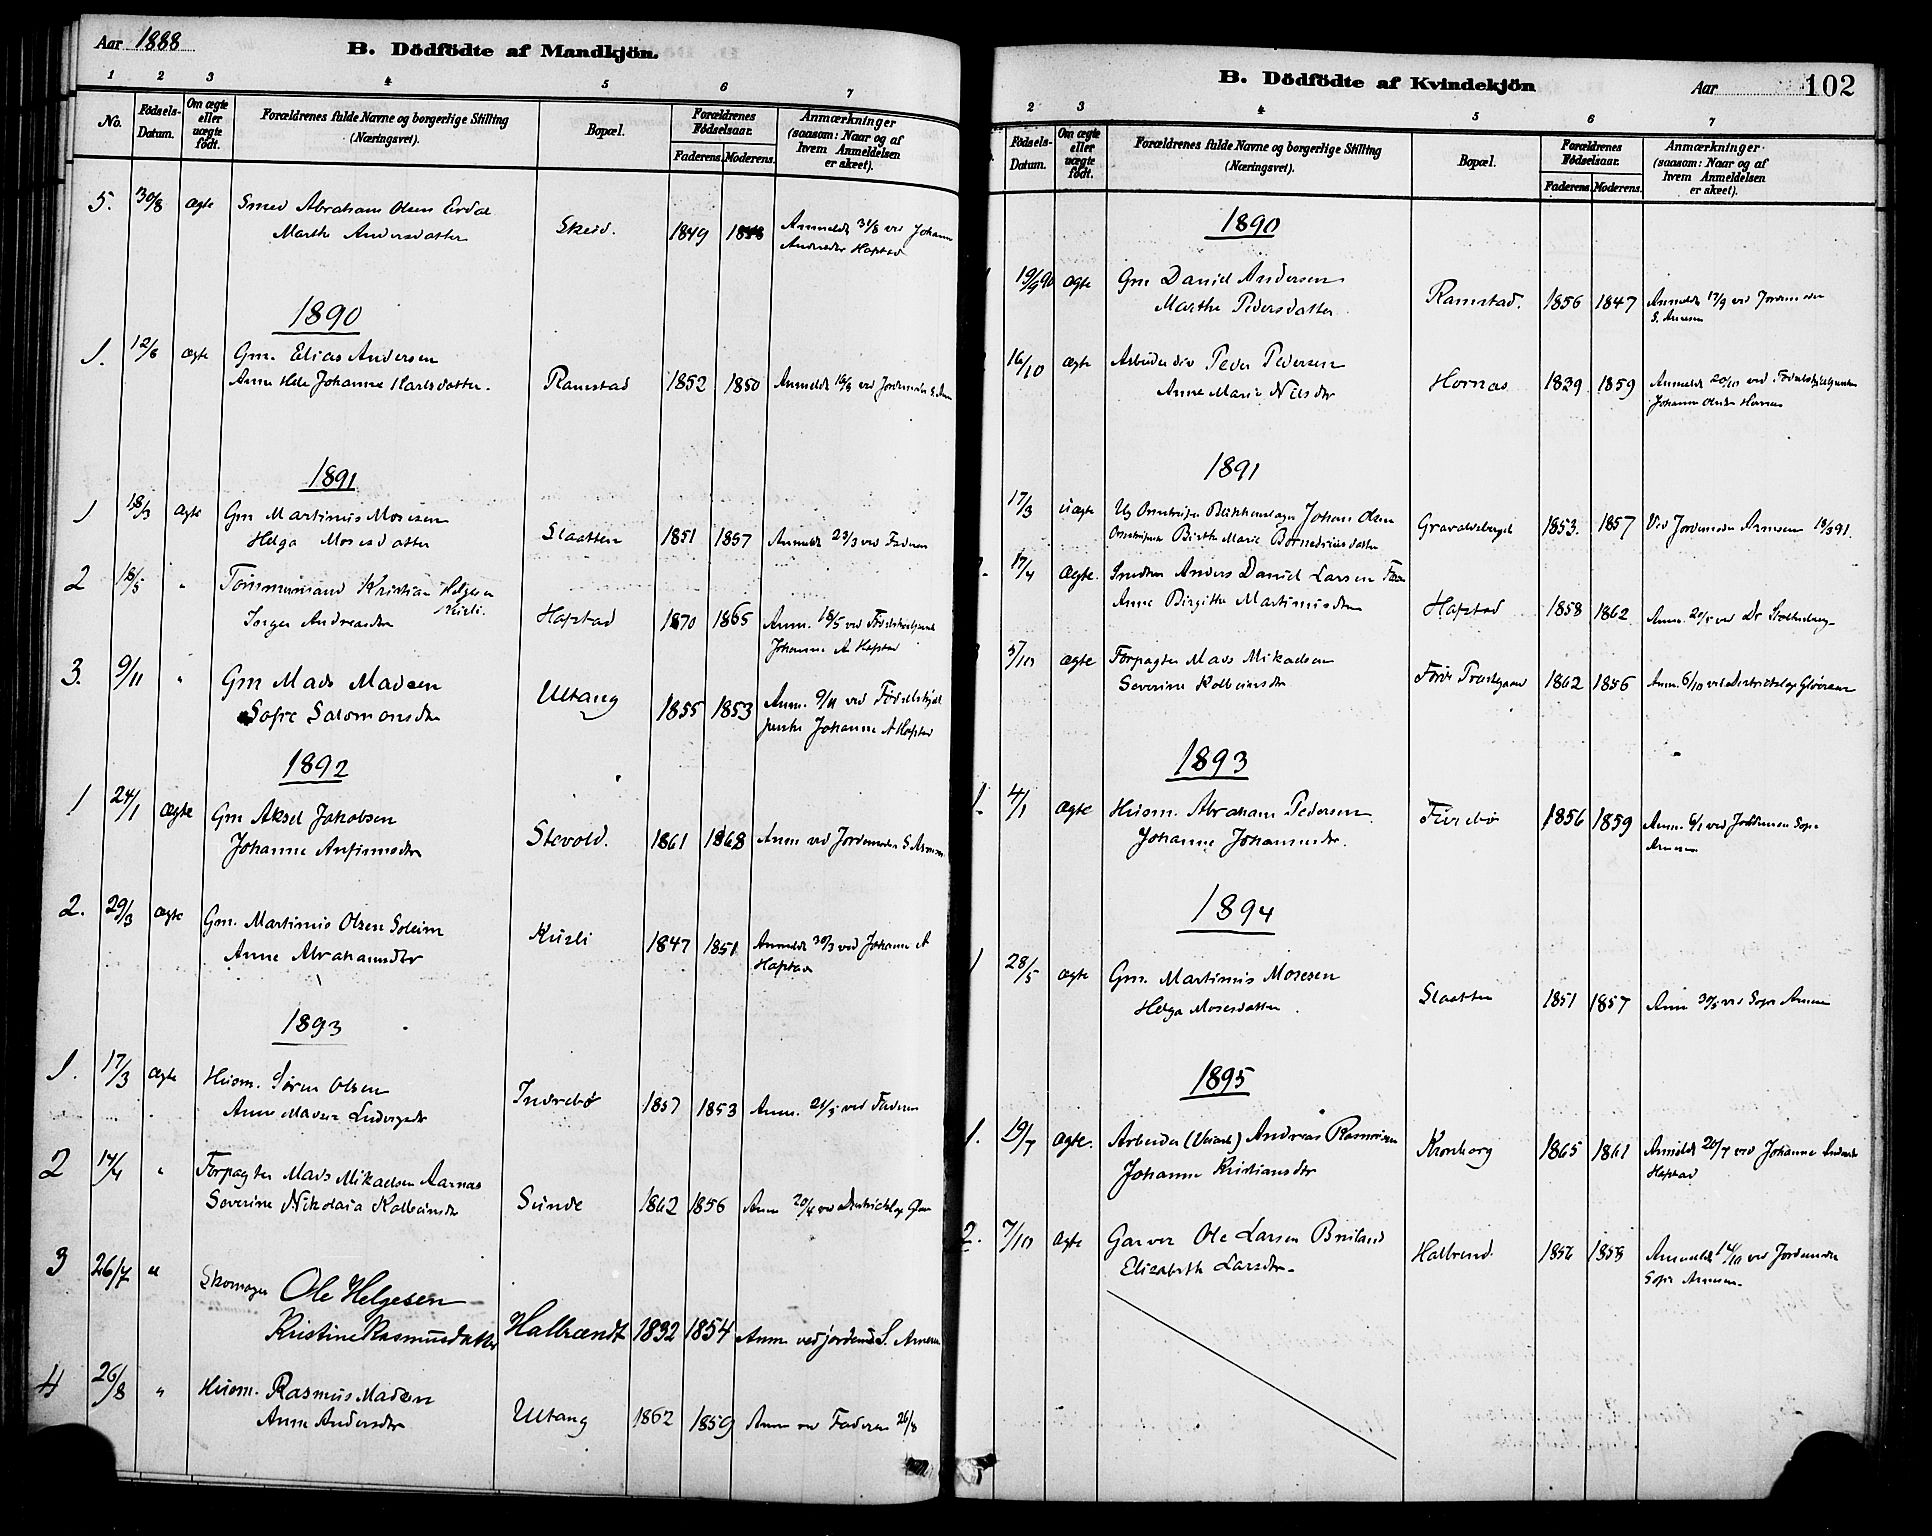 Aar 1888
B. Dödfödte af Mandkjön.
1 2 3 4 5 6 7
No. Födsels-Datum. Om ægte eller uægte født. Forældrenes fulde Navne og borgerlige Stilling (Næringsvei). Bopæl. Forældrenes Födselsaar. Faderens. Moderens. Anmærkninger (saasom: Naar og af hvem Anmeldelsen er skeet).
5. 30/8 ægte Smed Abraham Olsen Erdal Skeid. 1849 1848 Anmeldt 31/8 ved Johanne
Marthe Andersdatter Andersdtr Hafstad
1890
1. 12/6 ægte Gm. Elias Andersen Ramstad 1852 1850 Anmeldt 16/8 ved Jordemoder S. Arn
Anne Johanne Karlsdatter.
1891
1 18/3 ægte Gm Martinus Mosesen Slaatten 1851 1857 Anmeldt 23/3 ved Faderen
Helga Mosesdatter
2 18/5 " Tømmermand Kristian Helgesen Hafstad 1870 1865 Anm. 18/5 ved
Kusli.
Inger Andreasdtr Johanne A Hafstad
3. 9/11 " Gm Mads Madsen Ultang 1855 1853 Anm. 9/11 ved Fødselshjæl
Sofie Salomonsdtr perske Johanne A Hafstad
1892
1 24/1 ægte Gm Aksel Jakobsen Stevold. 1861 1868 Anm ved Jordemoder S Arnesen
Johanne Anfinnsdtr
2. 29/3 ægte Gm. Martinus Olsen Soleim Kusli 1847 1851 Anmeldt 30/3 ved Johanne A
Anne Abrahamsdtr Hafstad
1893
1. 17/3 ægte Husm. Søren Olsen Indrebø 1857 1853 Anm. 21/3 ved Faderen
Anne Ludvigsdtr
2 14/4 " Forpagter Mads Mikaelsen Aarnas Sunde 1862 1856 Anm 20/4 ved Distriktslæg
Severine Nikolaia Kolbeinsdtr
3 26/7 " Skomager Ole Helgesen Halbrændt 1832 1854 Anm ved jordemd S. Arnesen
Kristine Rasmusdatter
4 26/8 " Husm. Rasmus Madsen Ultang 1862 1859 Anm ved Faderen 26/8
Anne Andersdtr
B. Dödfödte af Kvindekjön
Aar 102
2 3 4 5 6 7
Födsels-Datum. Om ægte eller uægte födt. Forældrenes fulde Navne og borgerlige Stilling (Næringsvei). Bopæl. Forældrenes Födselsaar. Faderens. Moderens. Anmærkninger (saasom: Naar og af hvem Anmeldelsen er skeet).
1890
19/9 90 ægte Gm Daniel Andersen Ramstad. 1856 1847 Anmeldt 17/9 ved Jordemoder
Marthe Pedersdatter S. Arnesen
16/10 ægte Arbeider Peder Pedersen Hornas 1829 1859 Anmeldt 20/10 ved
Anne Marie Nilsdtr Johanne Olsdtr Hornas
1891
17/3 uægte Johan Olsen 1853. 1857 Ved Jordemoder Arnesen 18/3 91.
Birthe Marie
17/4 ægte. Anders Daniel Larsen Hafstad 1858 1862 Anm. ved Dr Stoltenberg
Anne Birgitte Martinusdtr
5/10 ægte Forpagter Mads Mikaelsen Førde Præstgaard 1862 1856 Anm. 6/10 ved Distriktslæg
Severine Kolbeinsdtr
1893
1. 4/1 ægte Husm. Abraham Pedersen Furebø 1856 1859 Anm. 6/1 ved Jordemoder Sofie
Johanne Johannesdtr. Arnesen
1894
1 28/5 ægte Gm. Martinus Mosesen Slaatten 1851 1857 Anm 30/5 ved Sofie Arnesen
Helga Mosesdatter
1895
1. 19/7 ægte. Arbeider Andreas Rasmussen Kronborg 1865 1861 Anmeldt 20/7 ved Johanne
Johanne Kristiansdtr Hafstad
2. 7/10 ægte Garver Ole Larsen Halbrend. 1856 1858 Anmeldt 14/10 ved Jordemoder
Elizabeth Larsdtr Sofie Arnesen